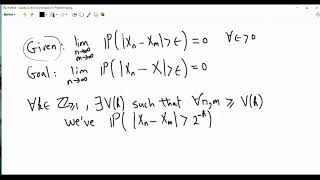 Given: lim n→∞ m→∞ ℙ(|Xn-Xm|>ε)=0 ∀ε>0
Goal: lim n→∞ ℙ(|Xn-X|>ε)=0
∀k∈ℤ≥1, ∃V(k) such that ∀n,m ≥ V(k)
we've ℙ(|Xn-Xm|>2^-k)